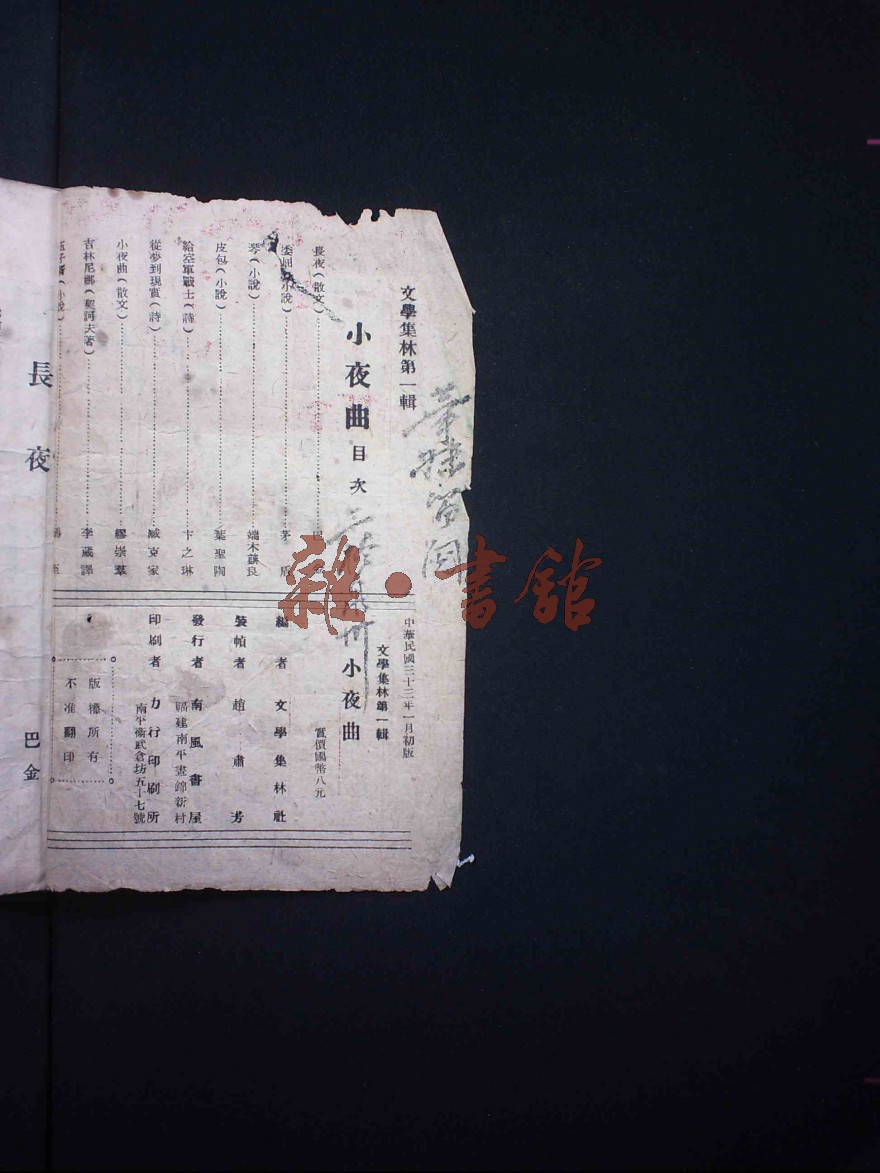 文學集林第一輯
小夜曲目次
長夜(散文)
委屈(小說)……茅盾
琴(小說)……端木蕻良
皮包(小說)……葉聖陶
給空軍戰士(詩)……卞之琳
從夢到現實(詩)……臧克家
小夜曲(散文)……繆崇羣
吉林尼娜(契訶夫著)……李葳譯
中華民國三十三年一月初版
文學集林第一輯
小夜曲
實價國幣八元
編者 文學集林社
裝幀者 趙肅芳
發行者 南風書屋
福建南平晝錦新村
印刷者 力行印刷所
南平衛武倉坊五十七號
版權所有
不准翻印
長夜
巴金
雜·書館